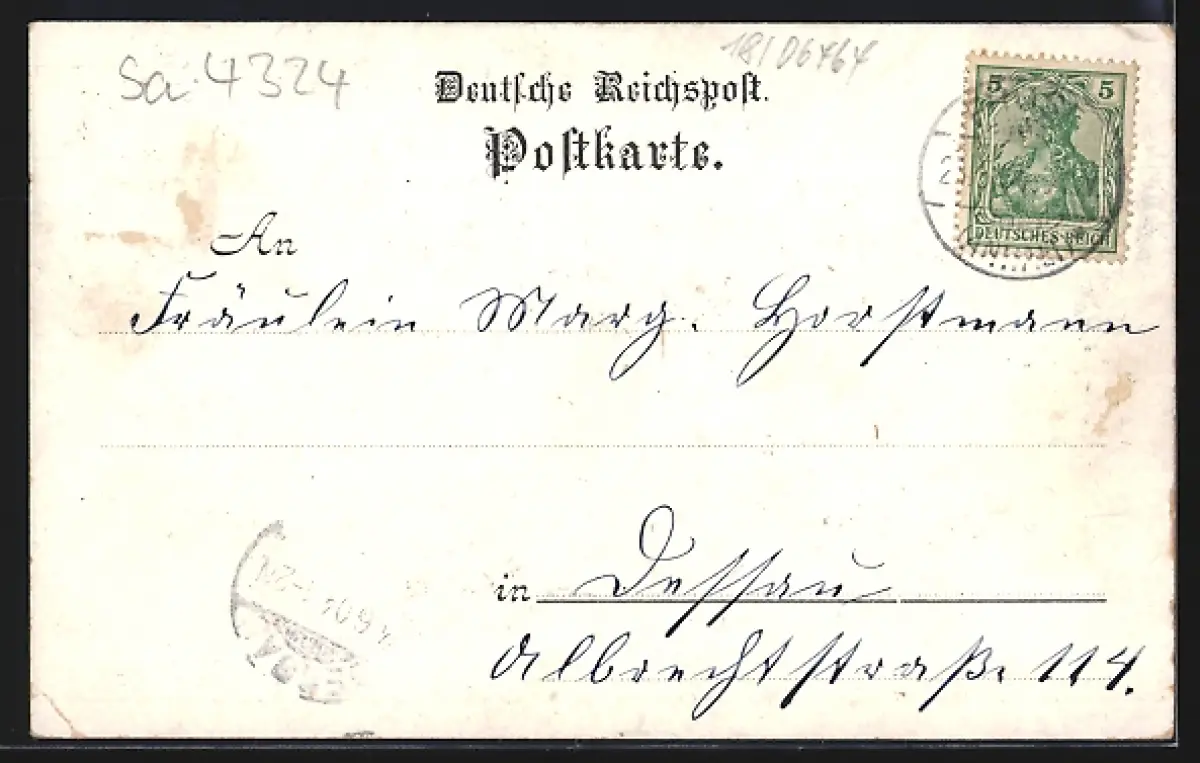 Sa 4324
18/06464
Deutsche Reichspost.
Postkarte.
5 5
DEUTSCHES REICH
An
Fräulein Marg. Horstmann
in Dessau
Albrechtstraße 114.